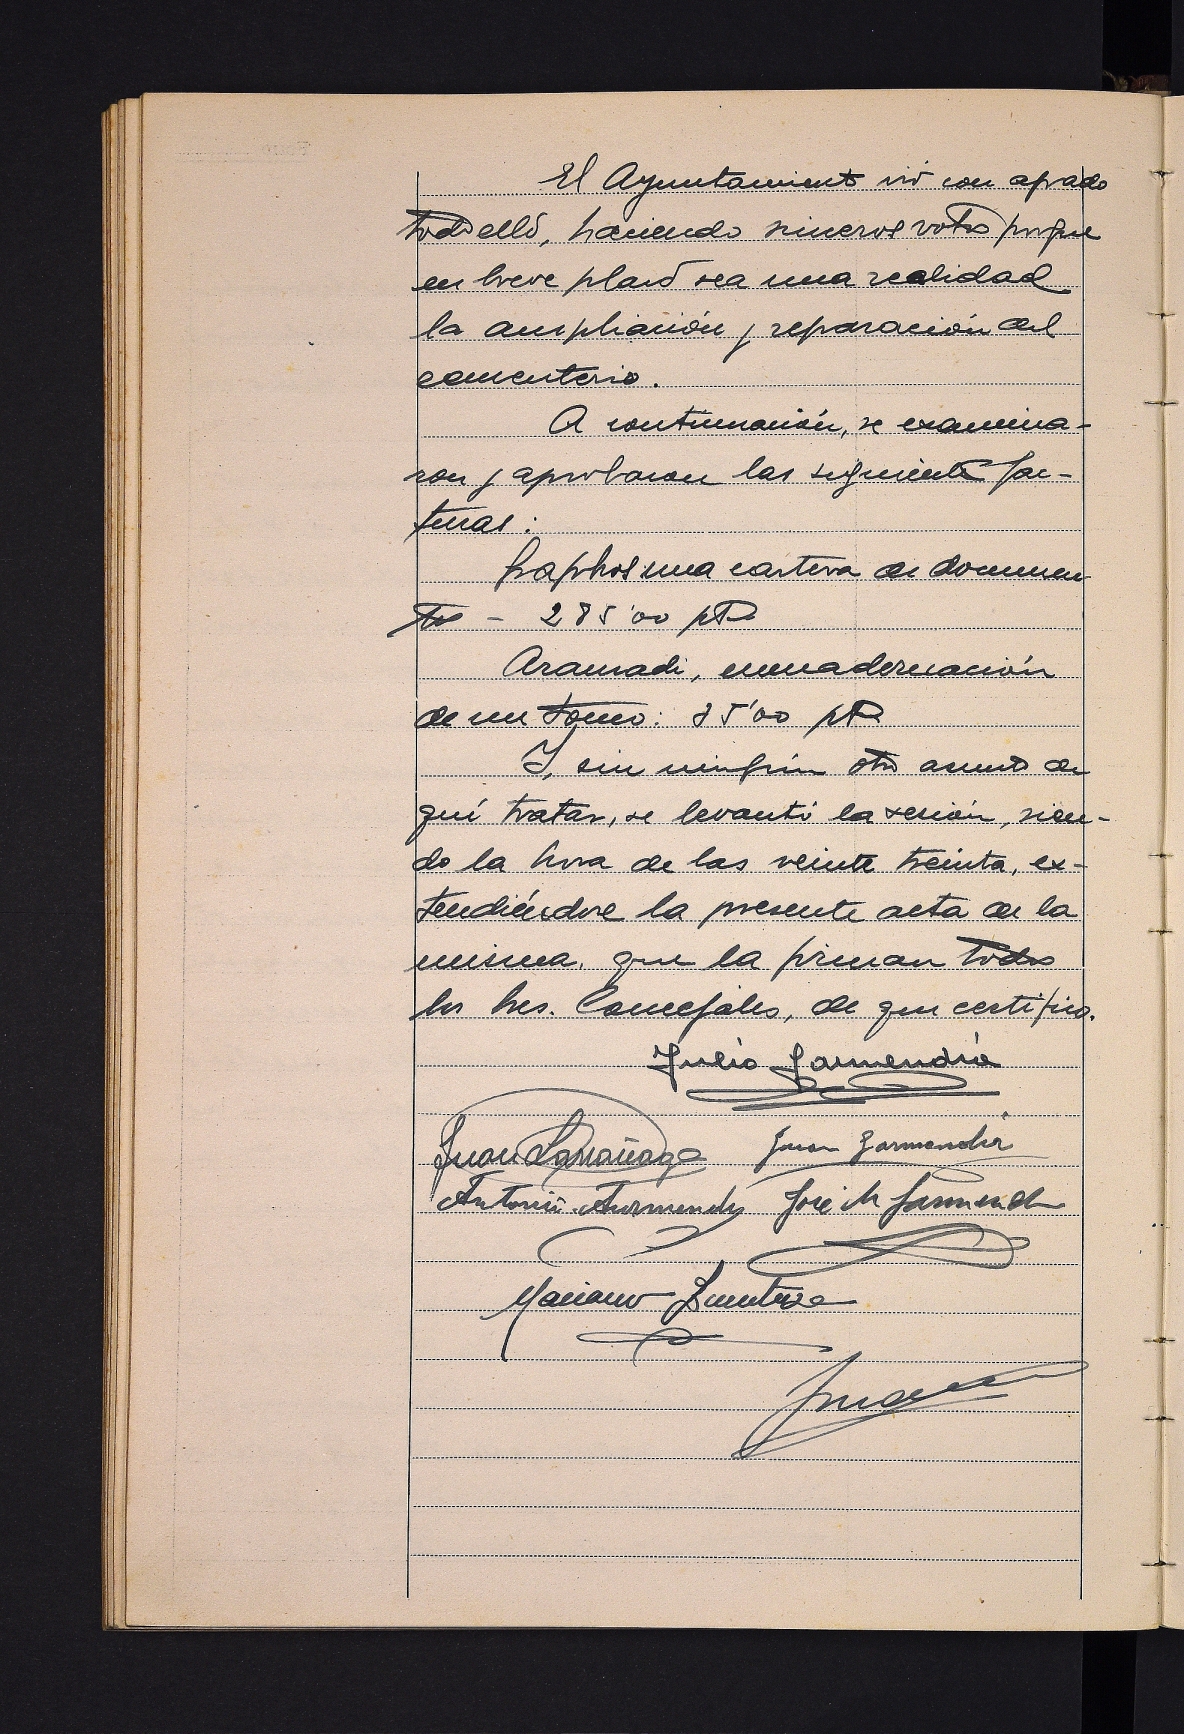 El Ayuntamiento vió con agrado
todo ello, haciendo sinceros votos porque
en breve plazo sea una realidad
la ampliación y reparación del
cementerio.
A continuación, se examina-
ron y aprobaron las siguientes fac-
turas:
Graphos una cartera de documen-
tos - 285'00 pts
Aramadi, encuadernación
de un tomo: 35'00 pts
Y, sin ningún otro asunto de
qué tratar, se levantó la sesión, sien-
do la hora de las veinte treinta, ex-
tendiéndose la presente acta de la
misma. que la firman todos
los Sres. Concejales, de que certifico.
Julio Garmendia
Juan Larrañaga Juan Garmendia
Antonio Jose M Garmendia
Mariano